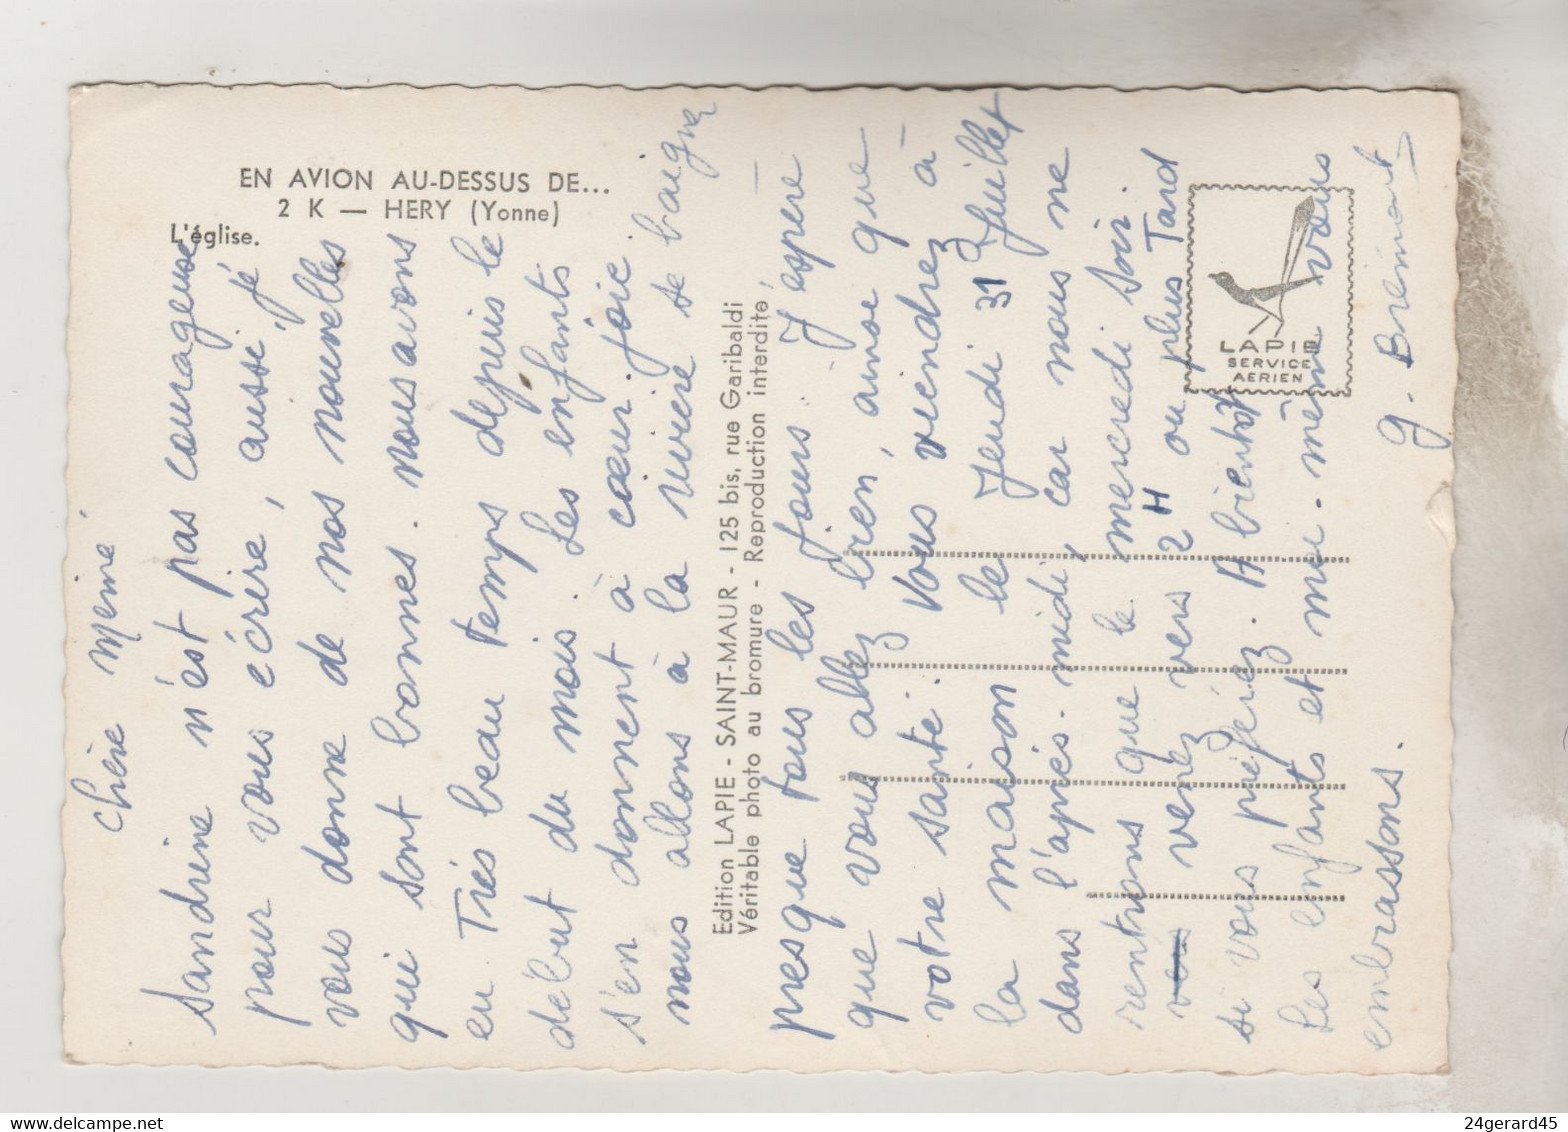 EN AVION AU-DESSUS DE...
2 K — HERY (Yonne)
L'église.
Chère Mémé
Sandrine n'est pas courageuse
pour vous écrire, aussi je
vous donne de nos nouvelles
qui sont bonnes. nous avons
eu Très beau temps depuis le
début du mois. Les enfants
s'en donnent à cœur joie
nous allons à la rivière se baigner
Edition LAPIE - SAINT-MAUR - 125 bis, rue Garibaldi
Véritable photo au bromure - Reproduction interdite
presque tous les jours. J'espère
que vous allez bien, ainse que
votre santé. Vous viendrez à
la maison le Jeudi 31 Juillet
dans l'après-midi, car nous ne
rentrons que le mercredi soir.
venez vers 2 H ou plus Tard
si vous préférez. A bientôt
Les enfants et moi-même vous
embrassons.
G. Brémont
LAPIE
SERVICE
AERIEN
24gerard45